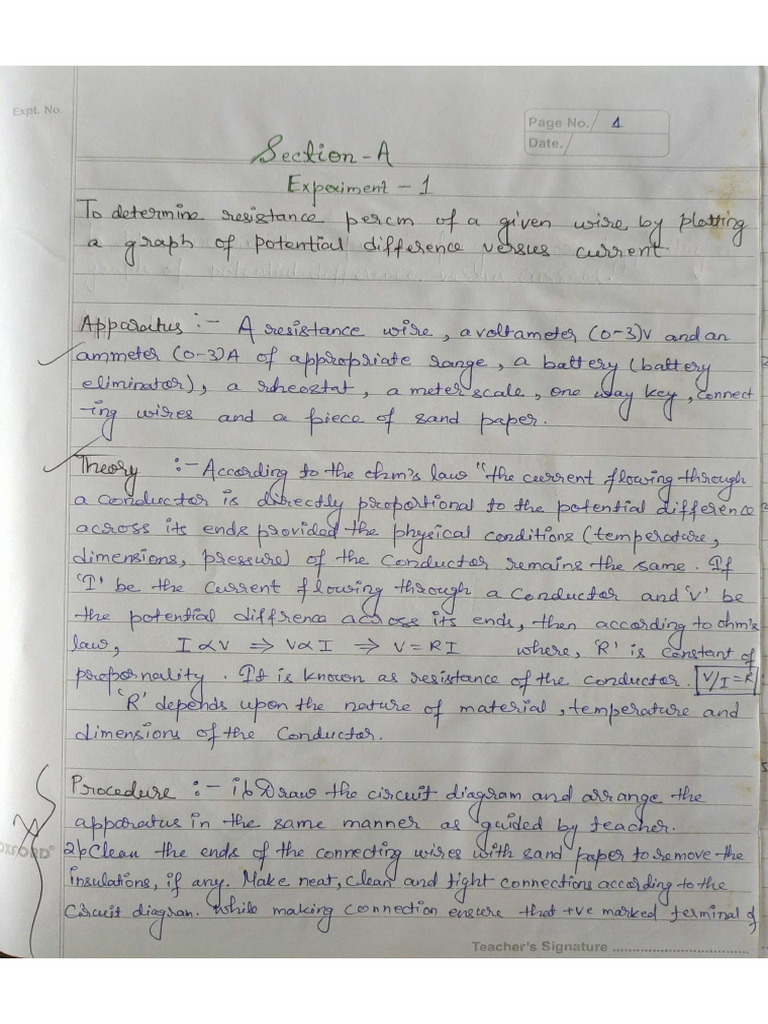 Expt. No.
Page No. 1
Date.
Section-A
Experiment - 1
To determine resistance percm of a given wire by plotting
a graph of potential difference versus current
Apparatus :- A resistance wire, a voltameter (0-3)V and an
ammeter (0-3)A of appropriate range, a battery (battery
eliminator), a rheostat, a meter scale, one way key, connect
-ing wires and a piece of sand paper.
Theory :- According to the ohm's law "the current flowing through
a conductor is directly proportional to the potential difference
across its ends provided the physical conditions (temperature,
dimensions, pressure) of the conductor remains the same. If
'I' be the current flowing through a conductor and 'V' be
the potential diffrence across its ends, then according to ohm's
law, I ∝ V ⇒ V ∝ I ⇒ V = RI where, 'R' is constant of
propornality. It is known as resistance of the conductor. V/I = R
'R' depends upon the nature of material, temperature and
dimensions of the conductor.
Procedure :- 1) Draw the circuit diagram and arrange the
apparatus in the same manner as guided by teacher.
2) Clean the ends of the connecting wires with sand paper to remove the
insulations, if any. Make neat, clean and tight connections according to the
circuit diagram. While making connection ensure that +ve marked terminal of
OXFORD
Teacher's Signature